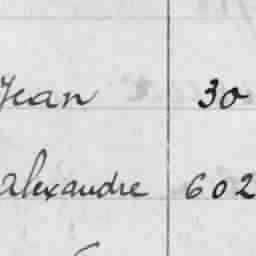 Jean 30
Alexandre 602